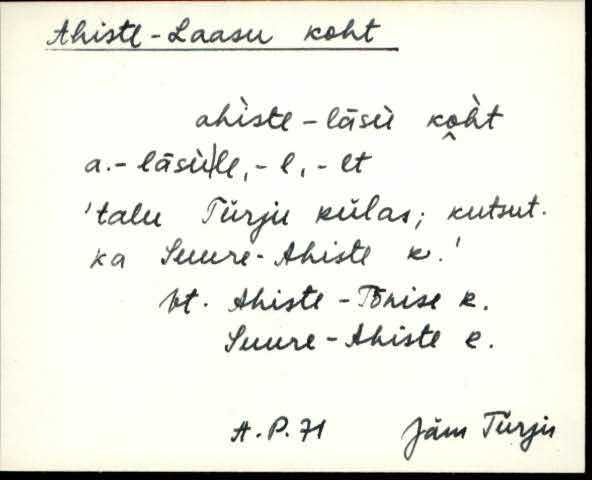 Ahiste-Laasu koht
ahìste-lāsù ko̭h̀t
a.-lāsù|le, -l, -lt
'talu Türju külas; kutsut.
ka Suure-Ahiste k.'
vt. Ahiste-Tõnise k.
Suure-Ahiste k.
A.P.71 Jäm Türju